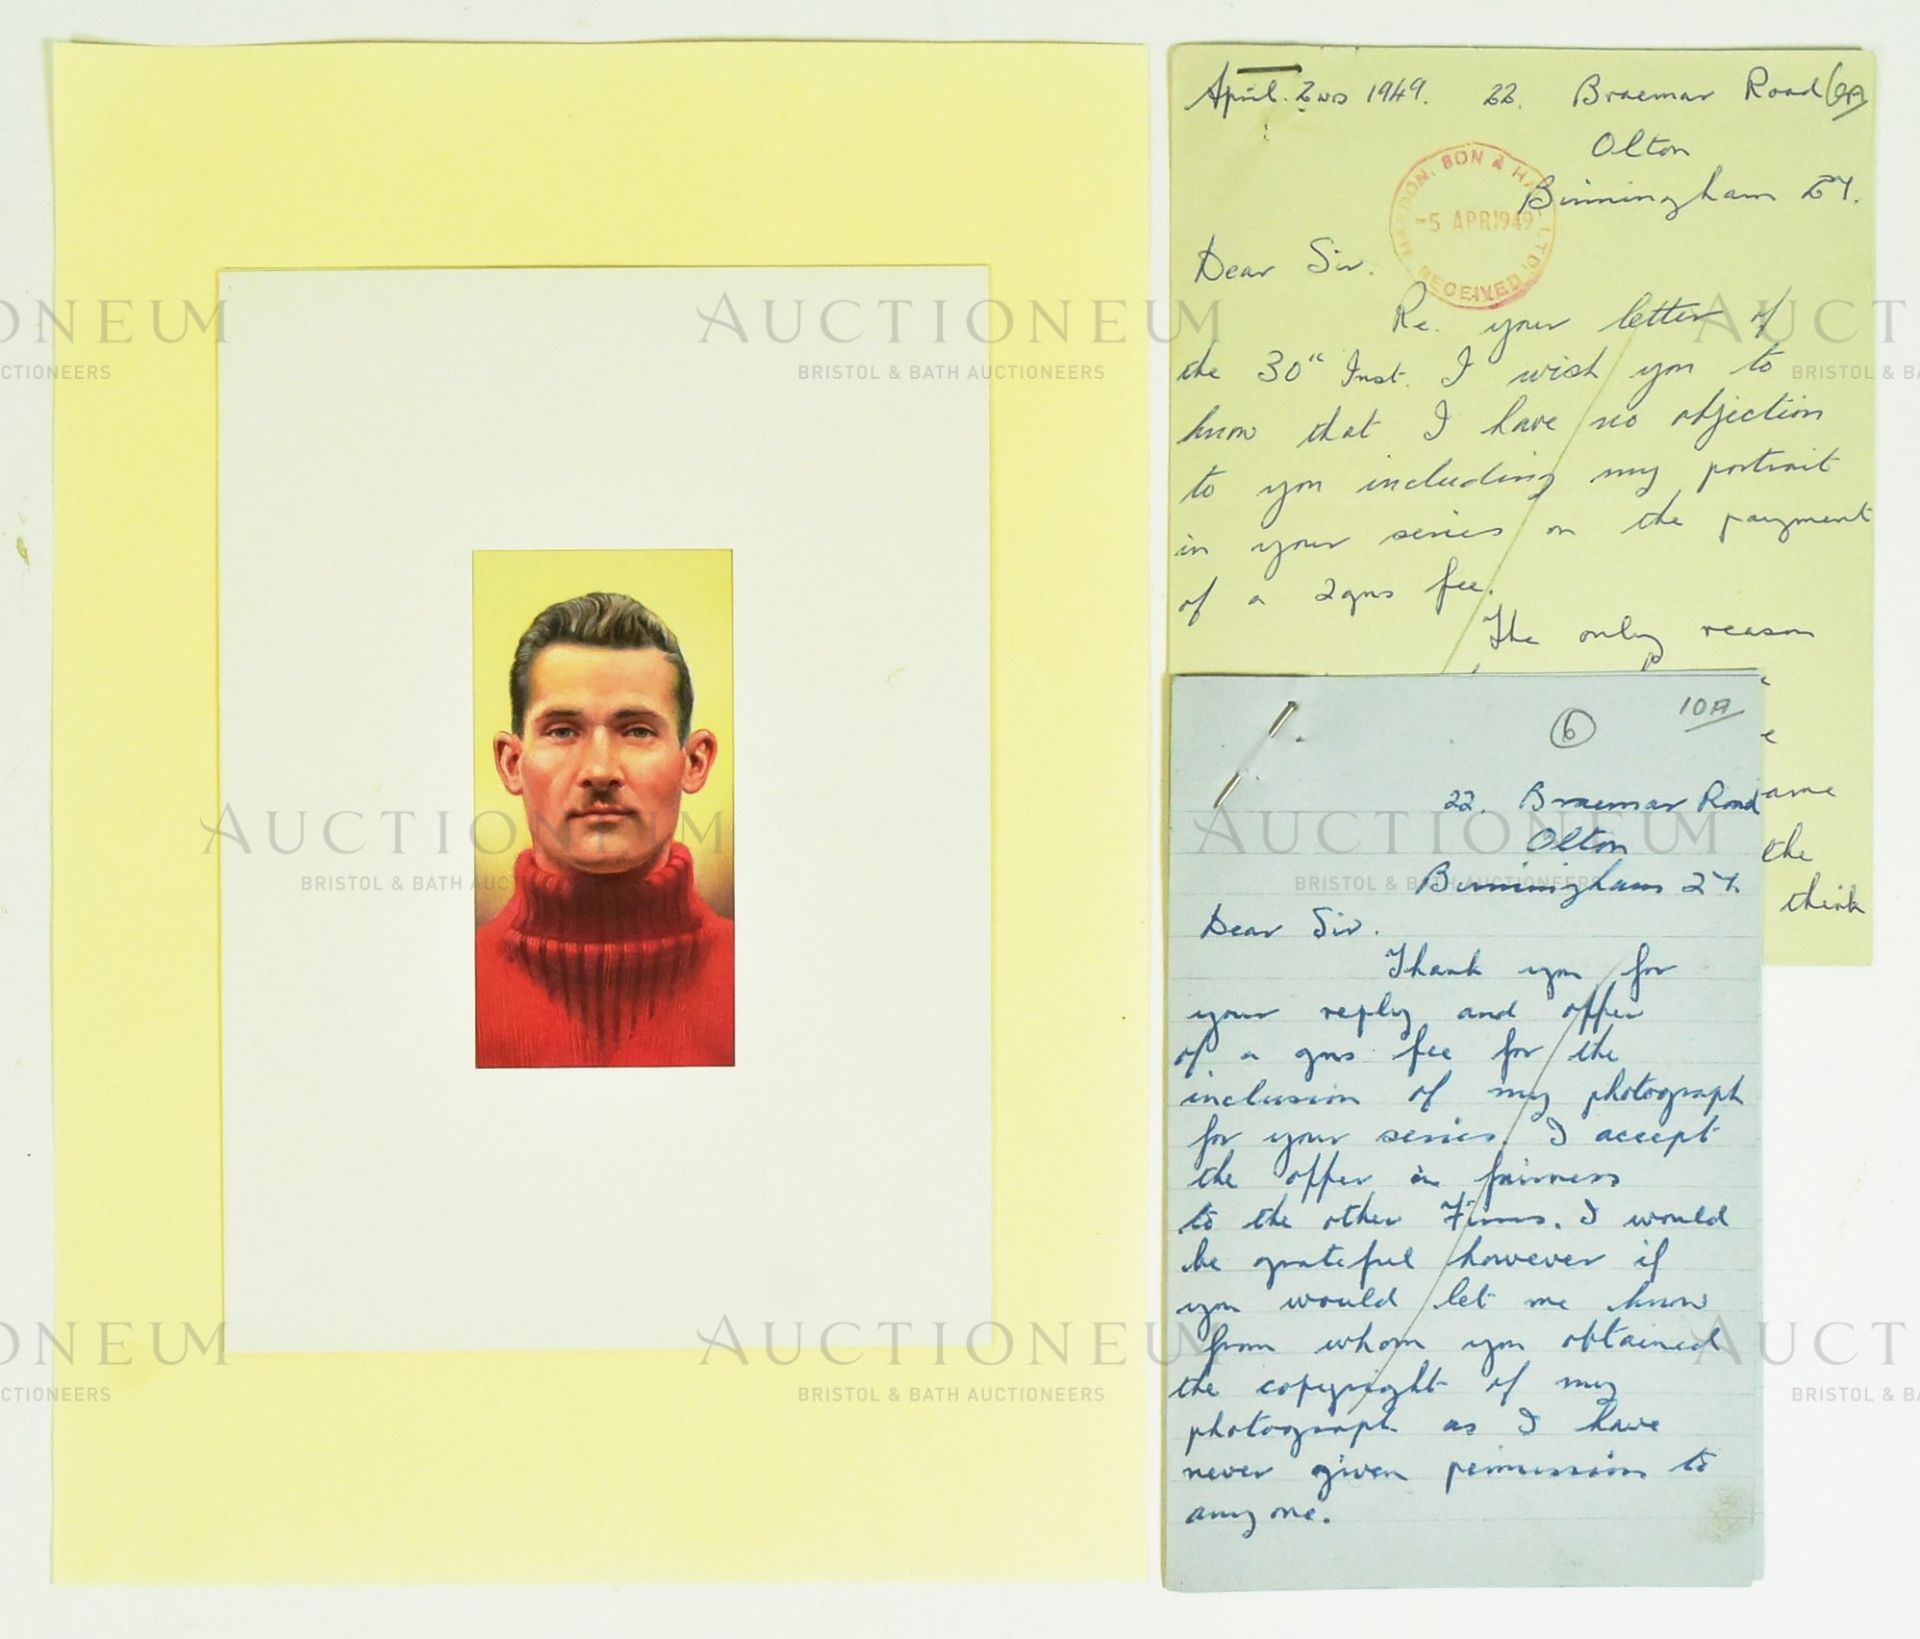 April. 2nd 1949. 22. Braemar Road 6A
Olton
Birmingham 27.
MARDON, SON & HALL LTD.
-5 APR 1949
RECEIVED
Dear Sir.
Re. your letter of
the 30" Inst. I wish you to
know that I have no objection
to you including my portrait
in your series on the payment
of a 2gns fee.
The only reason
ame
the
think
6 10A
22. Braemar Road
Olton
Birmingham 27.
Dear Sir.
Thank you for
your reply and offer
of a gns fee for the
inclusion of my photograph
for your series. I accept
the offer in fairness
to the other Firms. I would
be grateful however if
you would let me know
from whom you obtained
the copyright of my
photograph as I have
never given permission to
any one.
AUCTIONEUM
BRISTOL & BATH AUCTIONEERS